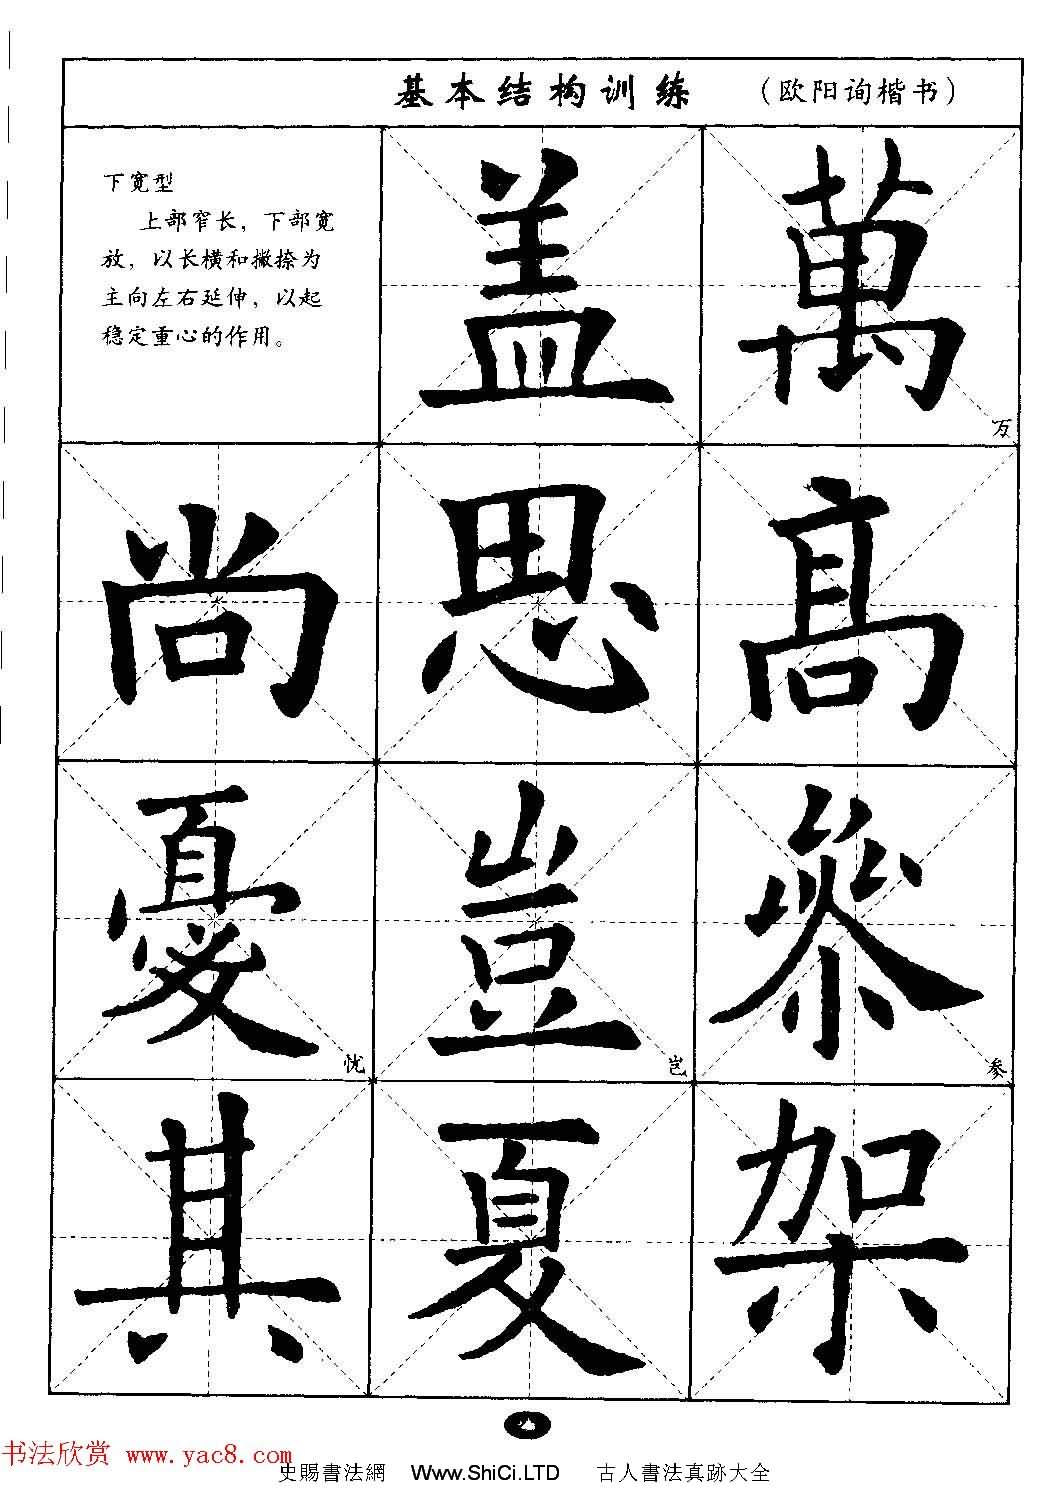 基本结构训练 （欧阳询楷书）
下宽型
上部窄长，下部宽
放，以长横和撇捺为
主向左右延伸，以起
稳定重心的作用。
盖 萬
万
尚 思 高
憂 豈 參
忧 岂 参
其 夏 架
书法欣赏 www.yac8.com
史賜書法網 Www.ShiCi.LTD 古人書法真跡大全